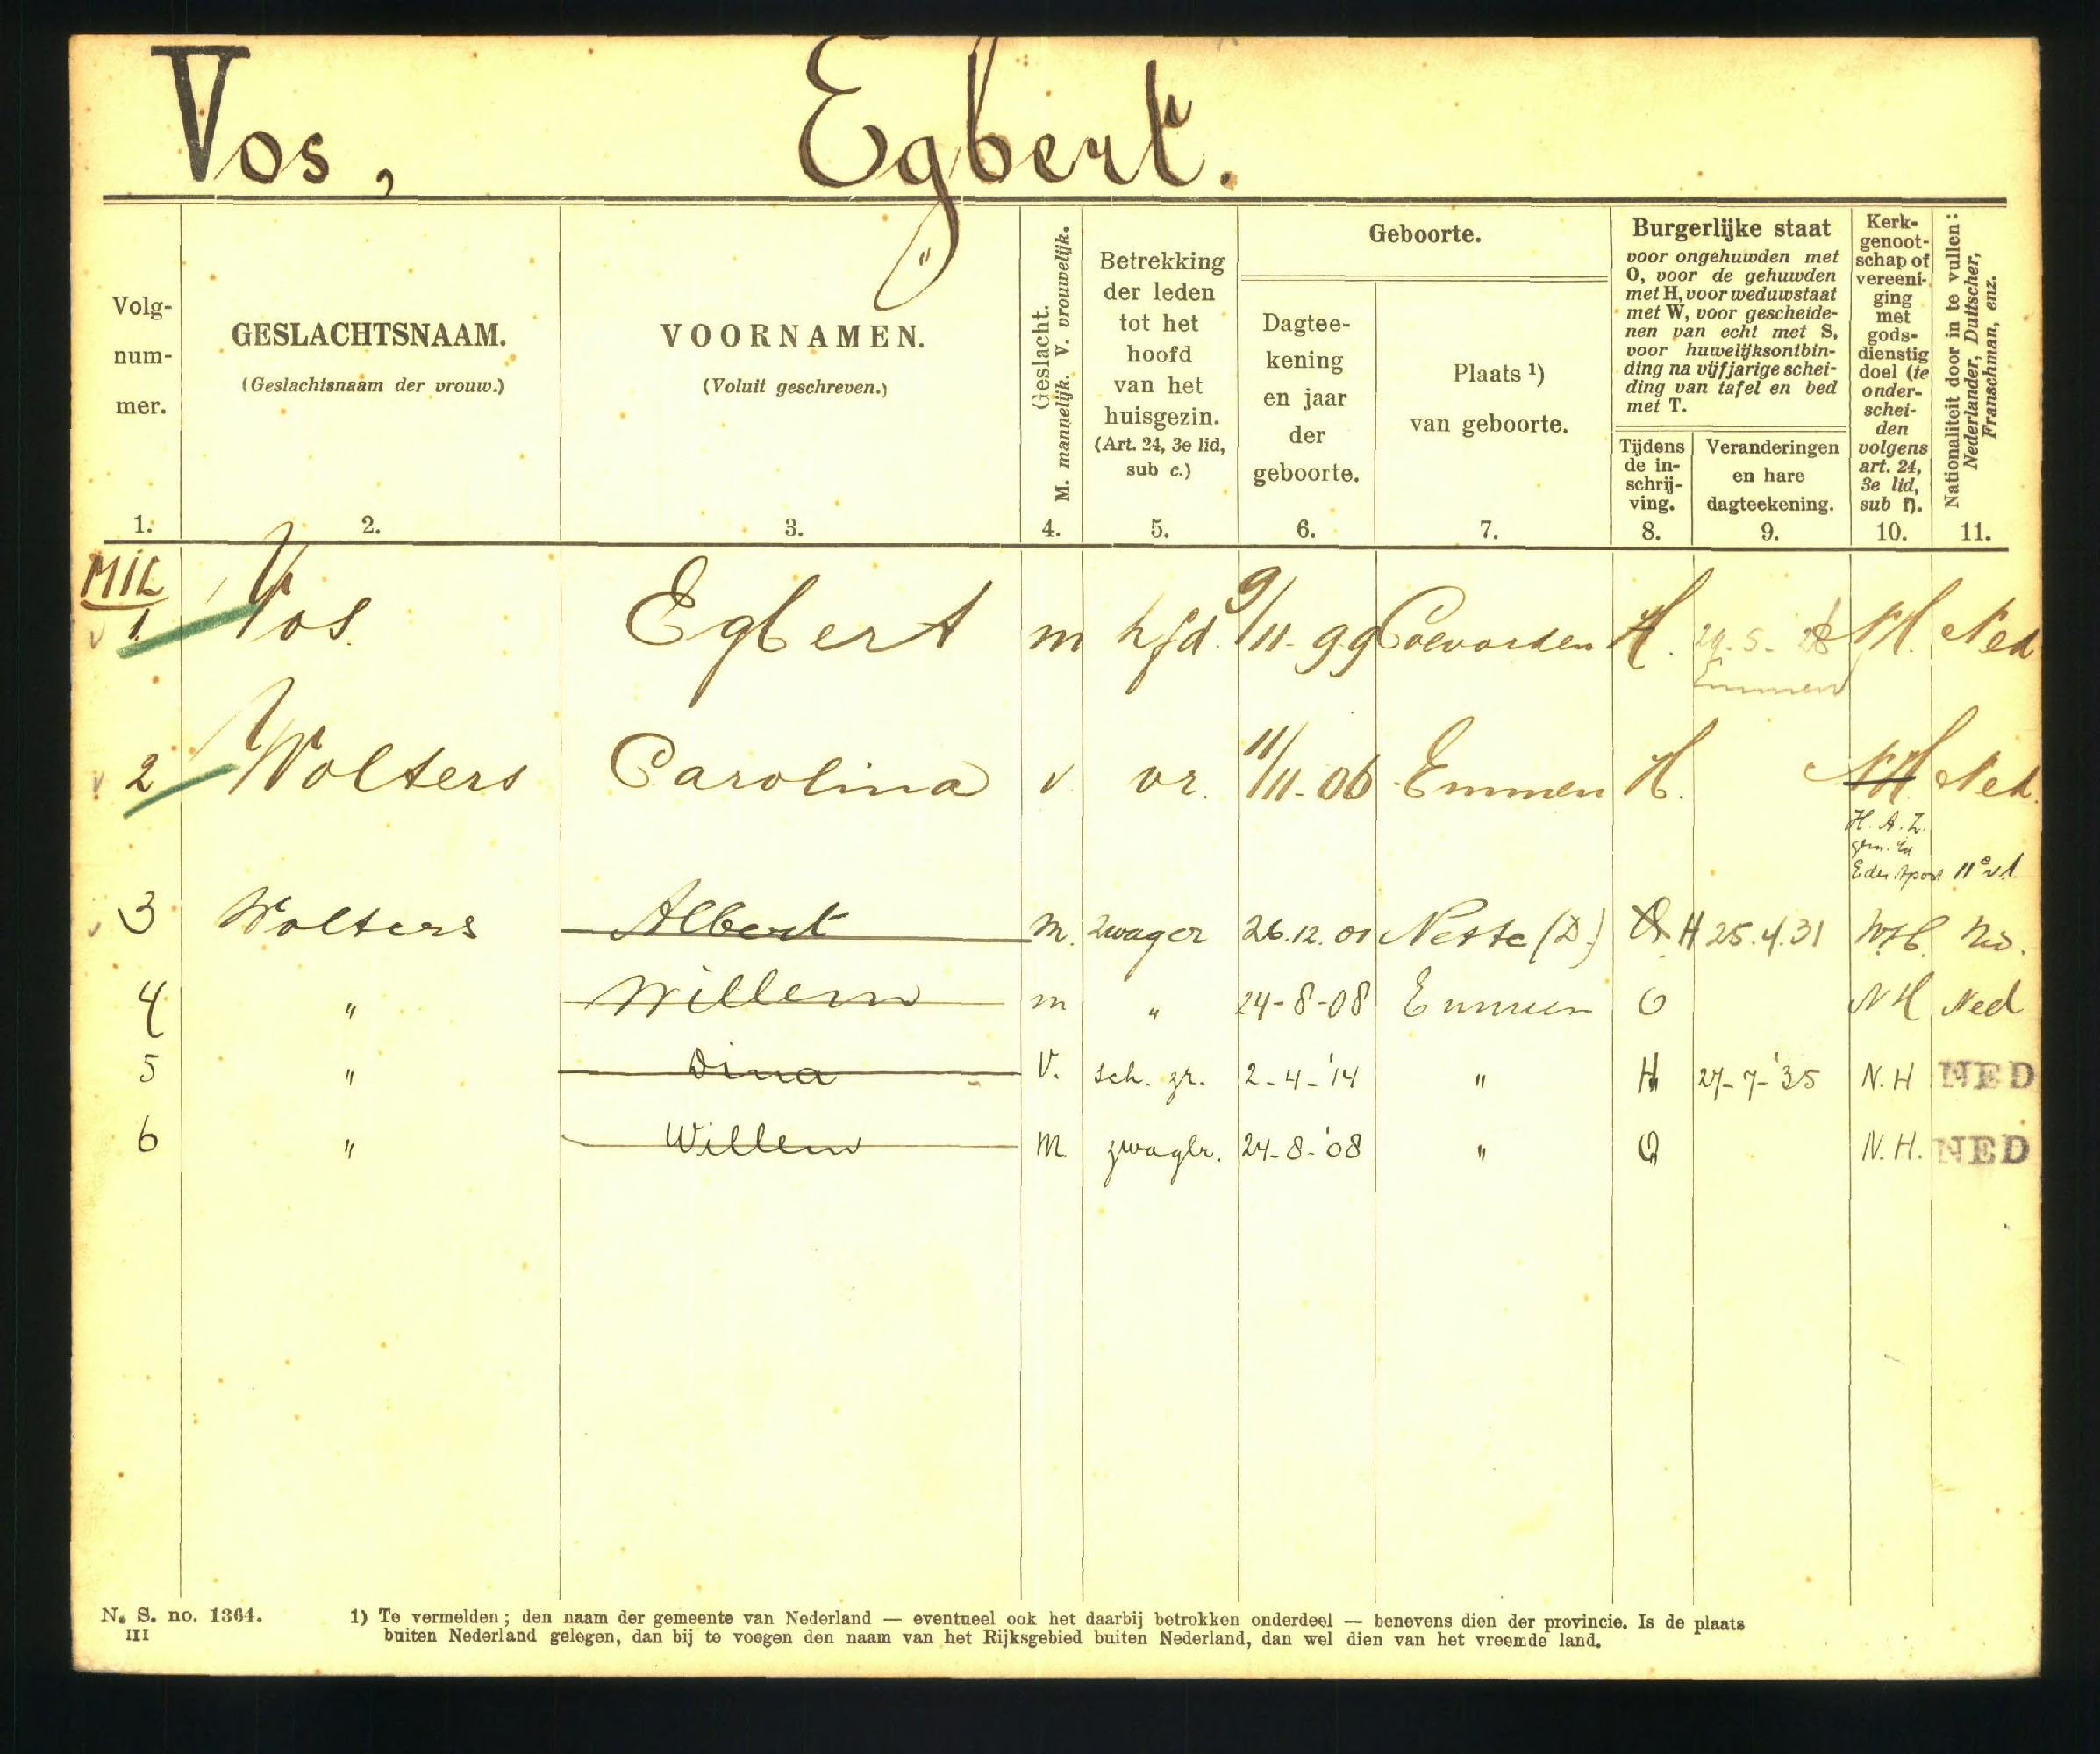 Vos, Egbert.
Volg-
num-
mer.
1.
GESLACHTSNAAM.
(Geslachtsnaam der vrouw.)
2.
VOORNAMEN.
(Voluit geschreven.)
3.
Geslacht.
M. mannelijk. V. vrouwelijk.
4.
Betrekking
der leden
tot het
hoofd
van het
huisgezin.
(Art. 24, 3e lid,
sub c.)
5.
Geboorte.
Dagtee-
kening
en jaar
der
geboorte.
6.
Plaats ¹)
van geboorte.
7.
Burgerlijke staat
voor ongehuwden met
O, voor de gehuwden
met H, voor weduwstaat
met W, voor gescheide-
nen van echt met S,
voor huwelijksontbin-
ding na vijfjarige schei-
ding van tafel en bed
met T.
Tijdens
de in-
schrij-
ving.
8.
Veranderingen
en hare
dagteekening.
9.
Kerk-
genoot-
schap of
vereeni-
ging
met
gods-
dienstig
doel (te
onder-
schei-
den
volgens
art. 24,
3e lid,
sub f).
10.
Nationaliteit door in te vullen:
Nederlander, Duitscher,
Franschman, enz.
11.
MIL
1. Vos. Egbert m hfd. 9/11-99 Coevorden H. 29-5-28 NH. Ned
Emmen
2 Wolters Carolina v vr. 11/11-06 Emmen H. NH. Ned.
H. A. Z.
gem. Ed
Eder Apost. 11e vt.
3 Wolters Albert m. zwager 26.12.01 O H 25.4.31 N.H. Ned.
4 " Willem m " 24-8-08 Emmen O NH Ned
5 " Dina V. sch. zr. 2-4-'14 " H 27-7-'35 N.H NED
6 " Willem M. zwagr. 24-8-'08 " O N.H. NED
N. S. no. 1364.
III
1) Te vermelden; den naam der gemeente van Nederland — eventueel ook het daarbij betrokken onderdeel — benevens dien der provincie. Is de plaats
buiten Nederland gelegen, dan bij te voegen den naam van het Rijksgebied buiten Nederland, dan wel dien van het vreemde land.